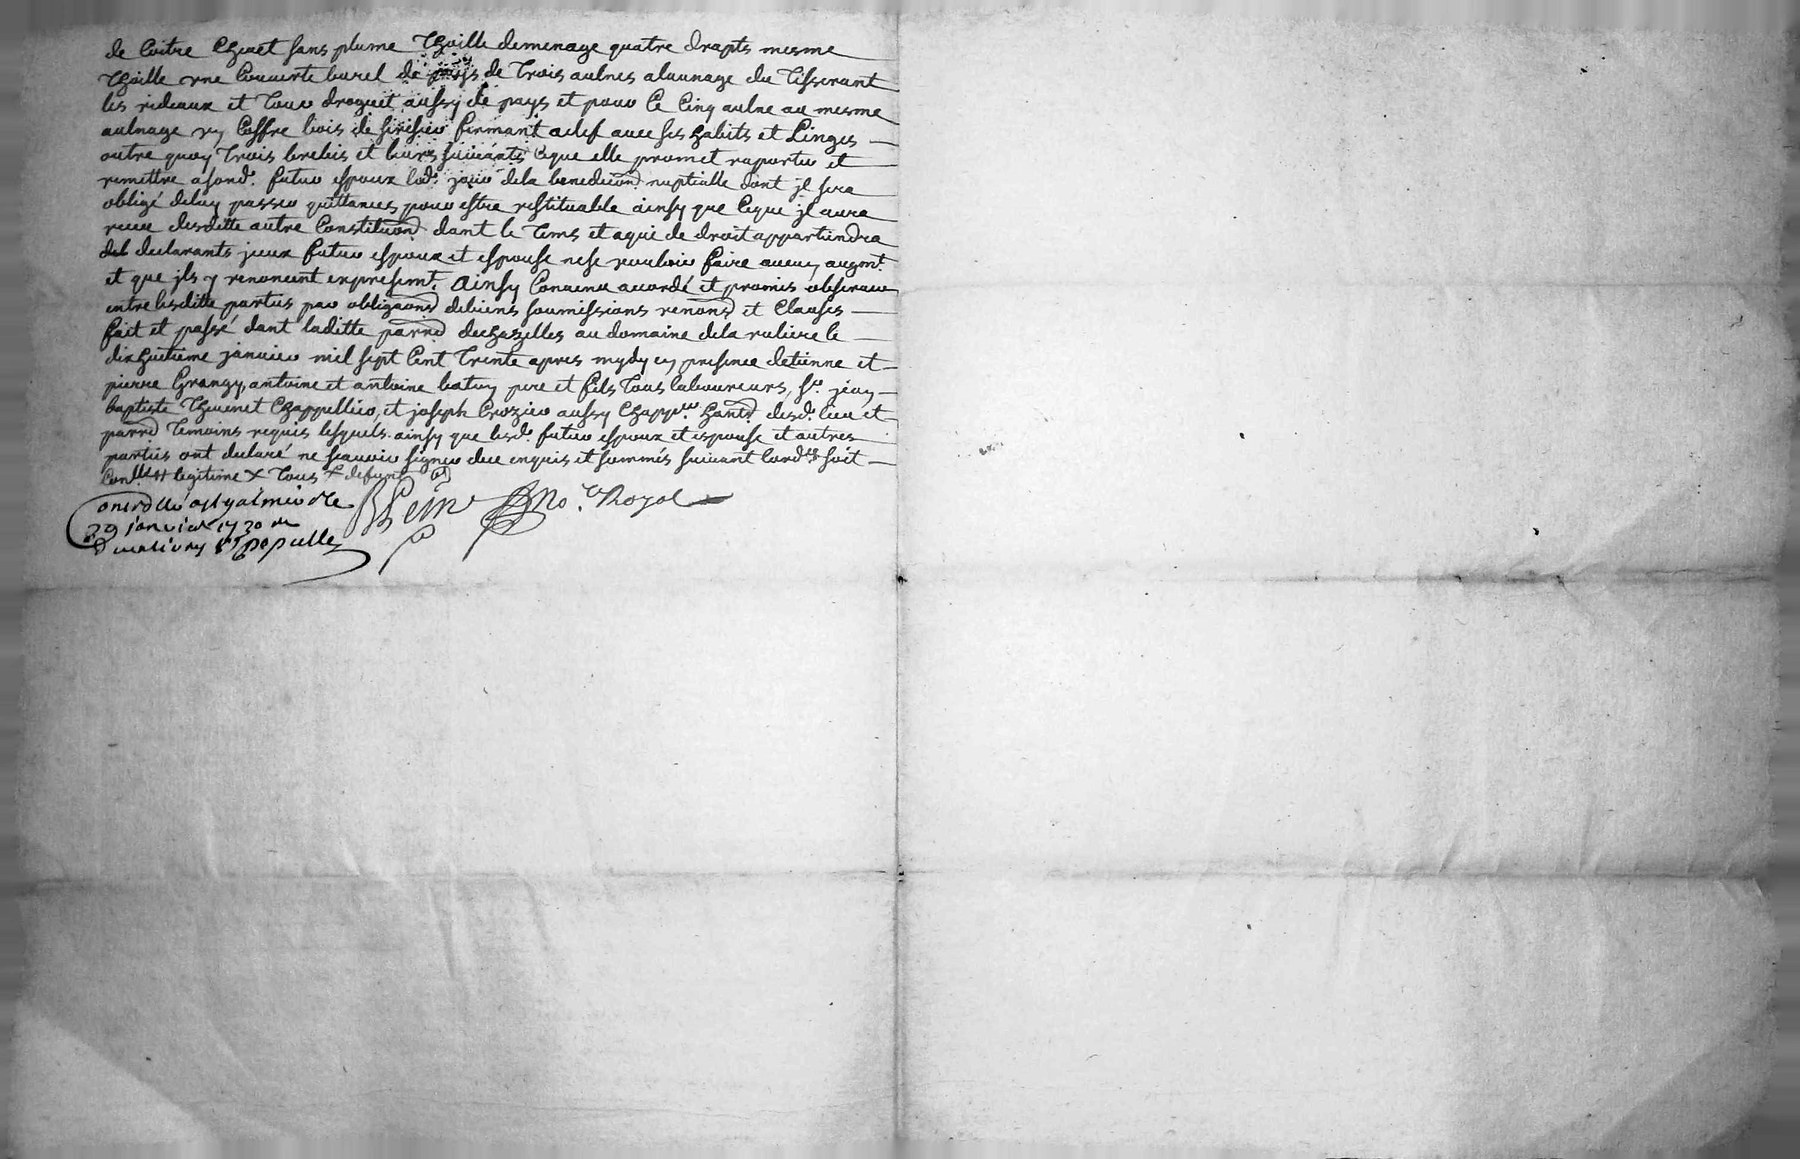 de Coitre Chevet sans plume Thoille demenage quatre drapts mesme
Thoille une Couverte burel de pays de Trois aulnes alaunage du Tisserant
les rideaux et Tour droguet aussy de pays et pour Ce Cinq aulne au mesme
aulnage un Coffre bois de serisier fermant aclef avec ses habits et Linges
outre quoy Trois brebis et leurs suivants Ceque elle promet raporter et
remettre asond. futur espoux led. jour dela benediction nuptialle dont jl sera
obligé deluy passer quittances pour estre restituable ainsy que Ceque jl aura
receu desditte autre Constitution dant le Tems et aqui de droit appartiendra
declarants jceux futur espoux et espouse nese vouloir faire aucun augmt.
et que jls y renoncent expressemt. ainsy Convenu accordé et promis observer
entre lesditte parties par obligaons debiens soumissions renons et Clauses
fait et passé dant laditte parre dechazelles au domaine dela ruliere le
dixhuitieme janvier mil sept Cent Trente apres mydy en presence detienne et
pierre Grangy, antoine et antoine batuy pere et fils Tous laboureurs, sr. jean
baptiste Thevenet Chappellier, et joseph Crozier aussy Chappr. hants desd. lieu et
parre Temoins requis lesquels ainsy que lesd. futur espoux et espouse et autres
parties ont declaré ne scavoir signer dece enquis et sommés suivant lordce soit
Conllé legitime X Tous X defunt
29 janvier 1730
Royal